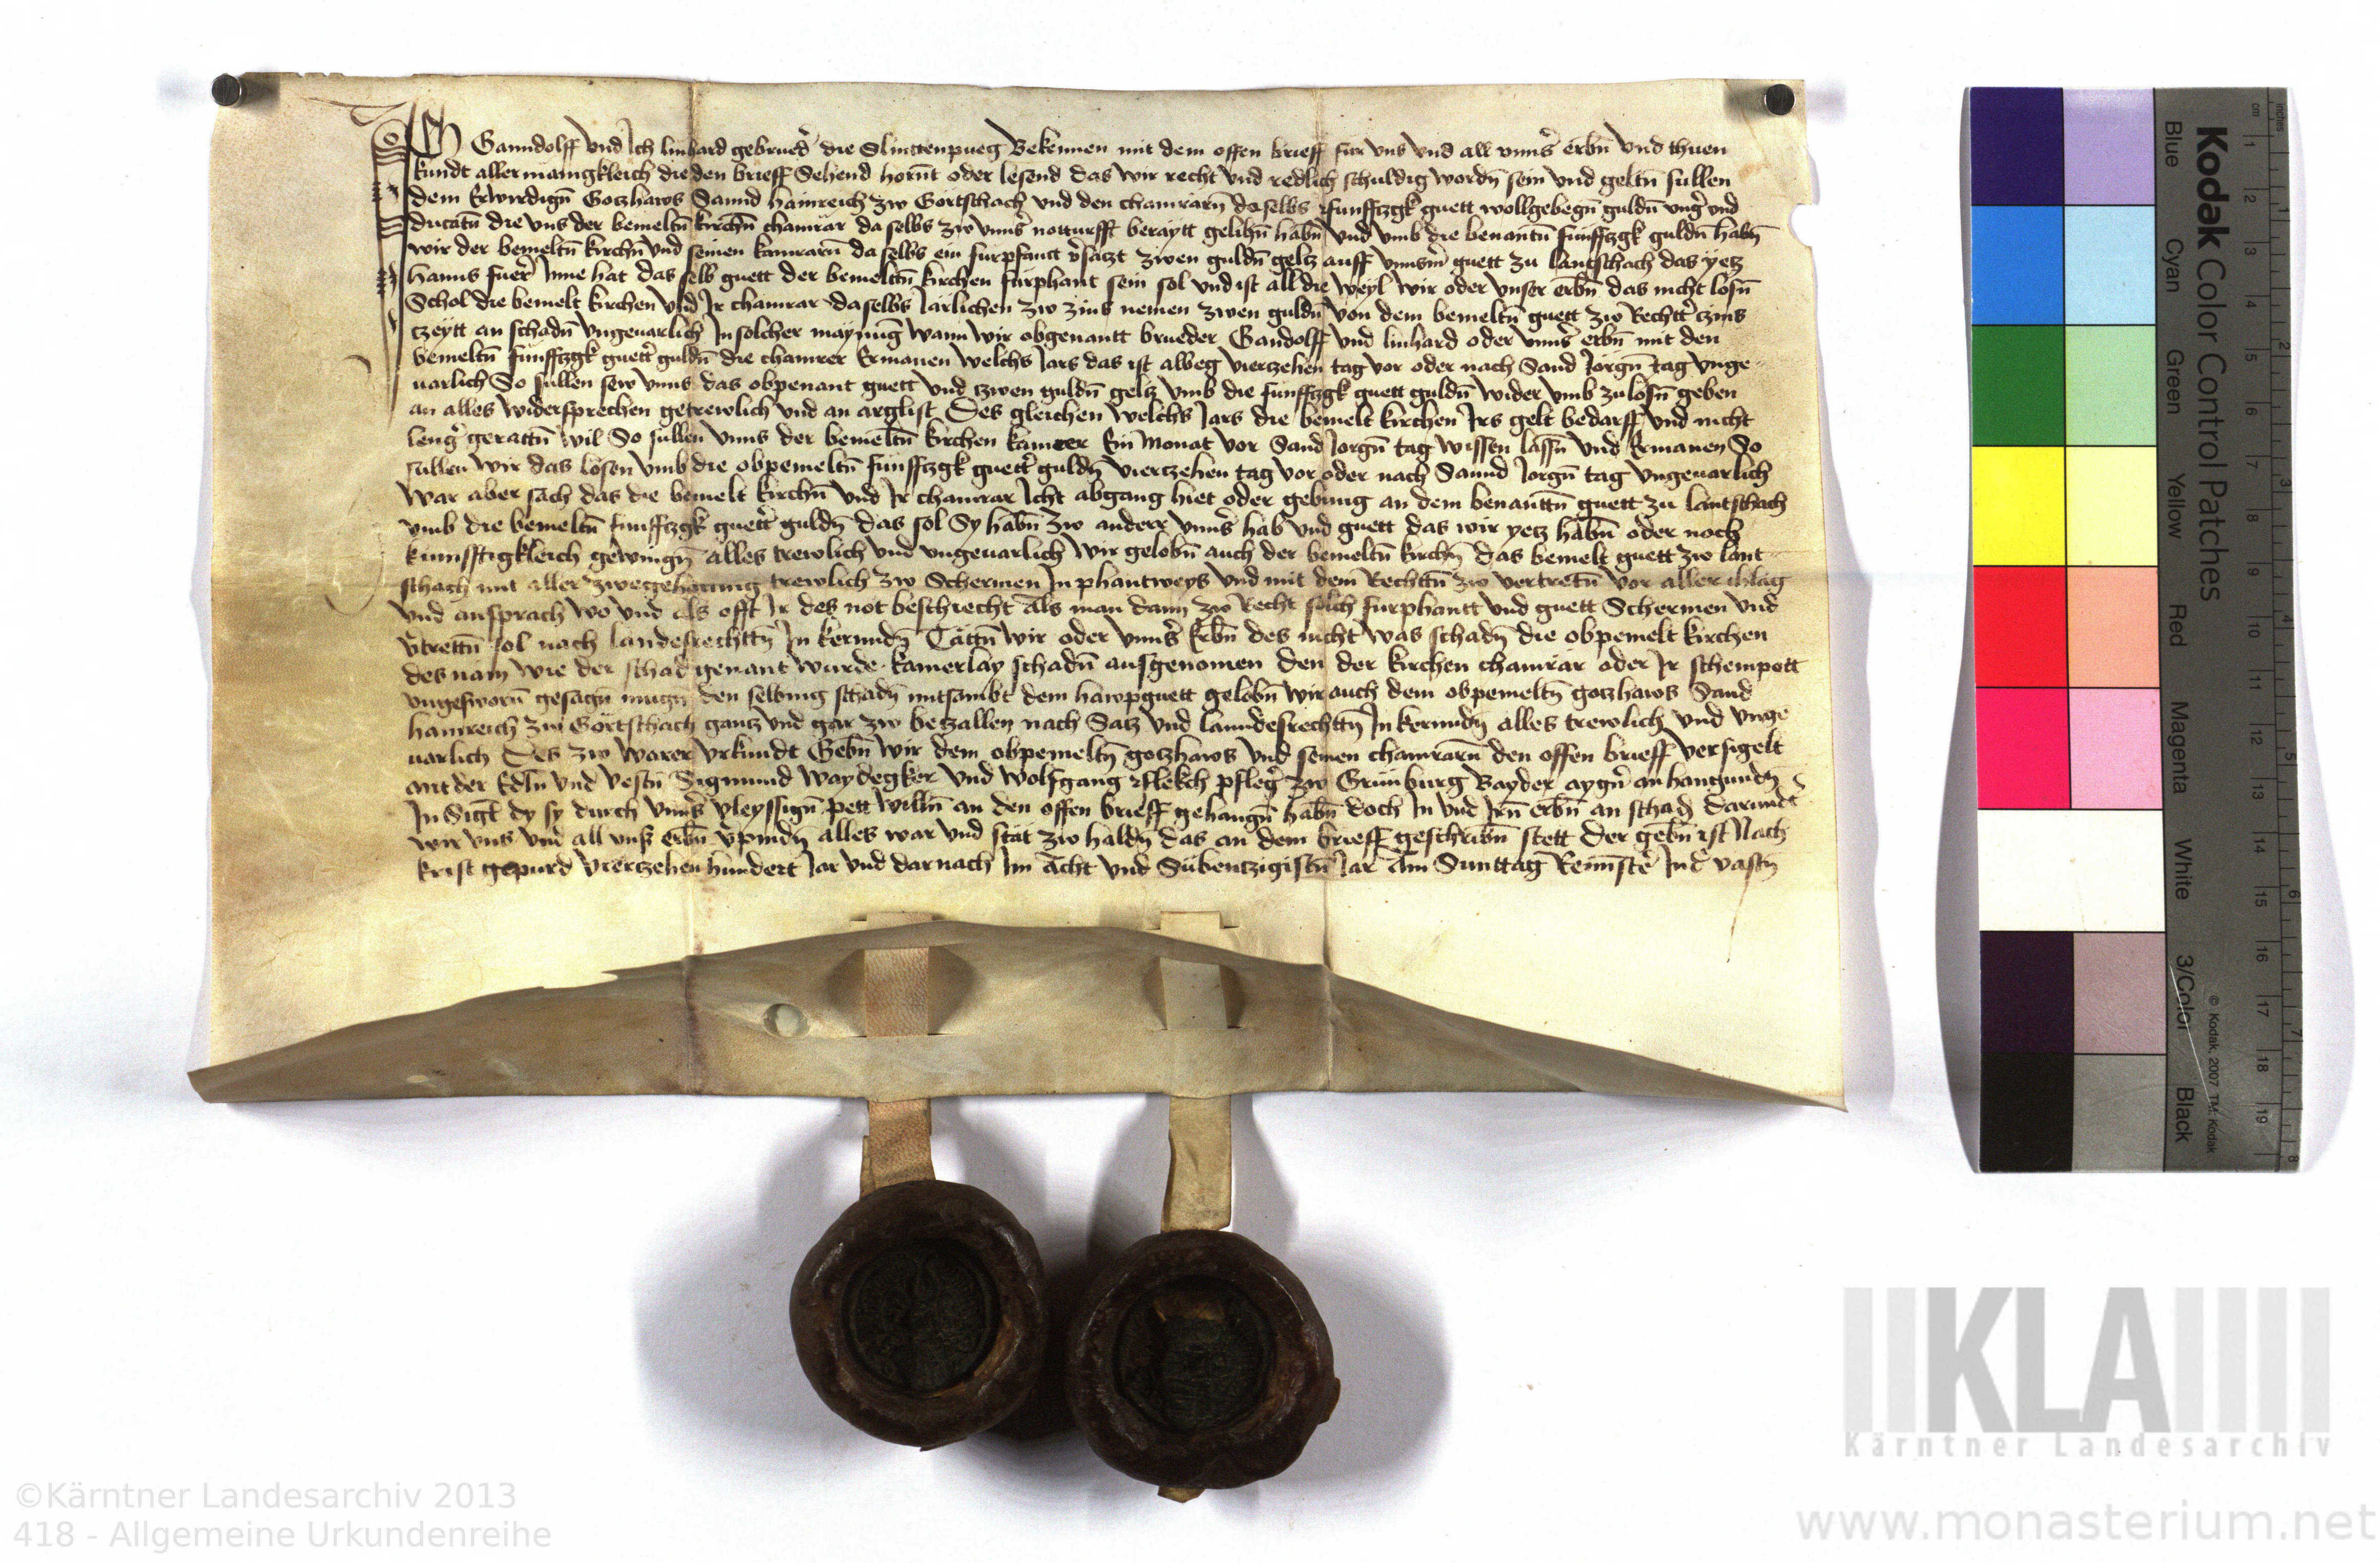 Ich Ganndolff vnd Ich linhard gebrued̉ die Slnittenpueg Bekennen mit dem offen brieff fur vns vnd all vnns̉ erbn̄ vnd thuen
kundt allermaingkleich die den brieff Sehend hornt oder lesend das wir recht vnd redlich schuldig wordn̄ sein vnd geltn̄ sullen
dem Erwirdign̄ Gotzhaws Sannd hainreich zw Görtschach vnd den chamrarn̄ daselbs funffczgk guett wollgebegn̄ guldn̄ vng̉ vnd
ducatn̄ die vns der bemeltn̄ kirchn̄ chamrär da selbs zw vnns̉ notturfft beraytt gelihn̄ habn̄ vnd vmb die benantn̄ funffczgk guldn̄ habn̄
wir der bemeltn̄ kirchn̄ vnd seinen kamrarn̄ da selbs ein furpfantt v̉saczt zwen guldn̄ geltz auff vnnsm̉ guett zu lantschach das yetz
hanns fuer̉ Inne hat das selb guett der bemeltn̄ kirchen furphant sein sol vnd ist all die weyl wir oder vnser erbn̄ das nicht losn̄
Schol die bemelt kirchen vnd Ir chamrar daselbs Järlichen zw zins nemen zwen guldn̄ von dem bemeltn̄ guett zw Rechtt̉ czins
czeytt an schadn̄ vngeuarlich In solcher maynūg wann wir obgenantt brueder Gandolff vnd linhard oder vnns̉ erbn̄ mit den
bemeltn̄ funffczgk guett̉ guldn̄ die chamrer Ermanen welchs Jars das ist albeg vierczehen tag vor oder nach Sand Jorgn̄ tag vnge-
uarlich So sullen sew vnns das obpenant guett vnd zwen guldn̄ geltz vmb die funffczgk guett guldn̄ wider vmb zu losn̄ geben
an alles widersprechen getrewlich vnd an arglist Des gleichen welchs Jars die bemelt kirchen Irs gelt bedarff vnd nicht
leng̉ gerattn̄ wil So sullen vnns der bemeltn̄ kirchen kamrer Ein Monat vor Sand Jorgn̄ tag wissen lassn̄ vnd Ermanen So
sullen wir das lösen vmb die obpemeltn̄ funffczgk guett̉ guldn̄ vierczehen tag vor oder nach Sannd Jorgn̄ tag vngeuarlich
War aber sach das die bemelt kirchn̄ vnd Ir chamrar Icht abgang hiet oder gebung an dem benanttn̄ guett zu lantschach
vmb die bemeltn̄ funffczgk guett̉ guldn̄ das sol Sy habn̄ zw anderr vnns̉ hab vnd guett das wir yetz habn̄ oder noch
kunfftigkleich gewingn̄ alles trewlich vnd vngeuarlich Wir gelobn̄ auch der bemeltn̄ kirchn̄ das bemelt guett zw lant-
schach mit aller zwegehorung trewlich zw Schermen In phantweys vnd mit dem Rechttn̄ zw vertretn̄ vor aller chlag
vnd ansprach wo vnd als offt Ir des not beschiecht als man dann zw Recht solch furphantt vnd guett Schermen vnd
v̉trettn̄ sol nach landesrechttn̄ In kernndn̄ Tättn̄ wir oder vnns̉ Erbn̄ des nicht was schadn̄ die obpemelt kirchen
des nam wie der schad genant wurde kamerlay schadn̄ ausgenomen den der kirchen chamrär oder Ir schempott
vngesworn̄ gesagn̄ mugn̄ den selbing schadn̄ mitsambt dem hawpguett gelobn̄ wir auch dem obpemeltn̄ gotzhaws Sand
hainreich zw Görtschach gantz vnd gar zw betzallen nach Satz vnd lanndesrechttn̄ In kernndn̄ alles trewlich vnd vnge
uarlich Des zw warer vrkundt Gebn̄ wir dem obpemeltn̄ gotzhaws vnd seinen chamrarn̄ den offen brieff versigelt
mit der Edln̄ vnd vestn̄ Sigmund Waydegker vnd wolfgang flekch pfleg̉ zw Grünburg Bayder aygn̄ anhangundn̄
In Sigl̄ dy sy durch vnns̉ vleyssign̄ pett willn̄ an den offen brieff gehangn̄ habn̄ doch In vnd Irn̄ erbn̄ an schadn̄ darundt̉
wir vns vnd all vnss̉ erbn̄ v̉pindn̄ alles war vnd stät zw haldn̄ das an dem brieff geschribn̄ stett Der gebn̄ ist Nach
krist gepurd vierczehen hundert Jar vnd darnach Im Acht vnd Sübentzigistn̄ Jar Am Sunttag Remisste̓ In d̉ vastn̄
Kodak Color Control Patches
Blue Cyan Green Yellow Red Magenta White 3/Color Black
© Kodak, 2007 TM: Kodak
cm 1 2 3 4 5 6 7 8 9 10 11 12 13 14 15 16 17 18 19
inches 1 2 3 4 5 6 7 8
KLA
Kärntner Landesarchiv
©Kärntner Landesarchiv 2013
418 - Allgemeine Urkundenreihe
www.monasterium.net